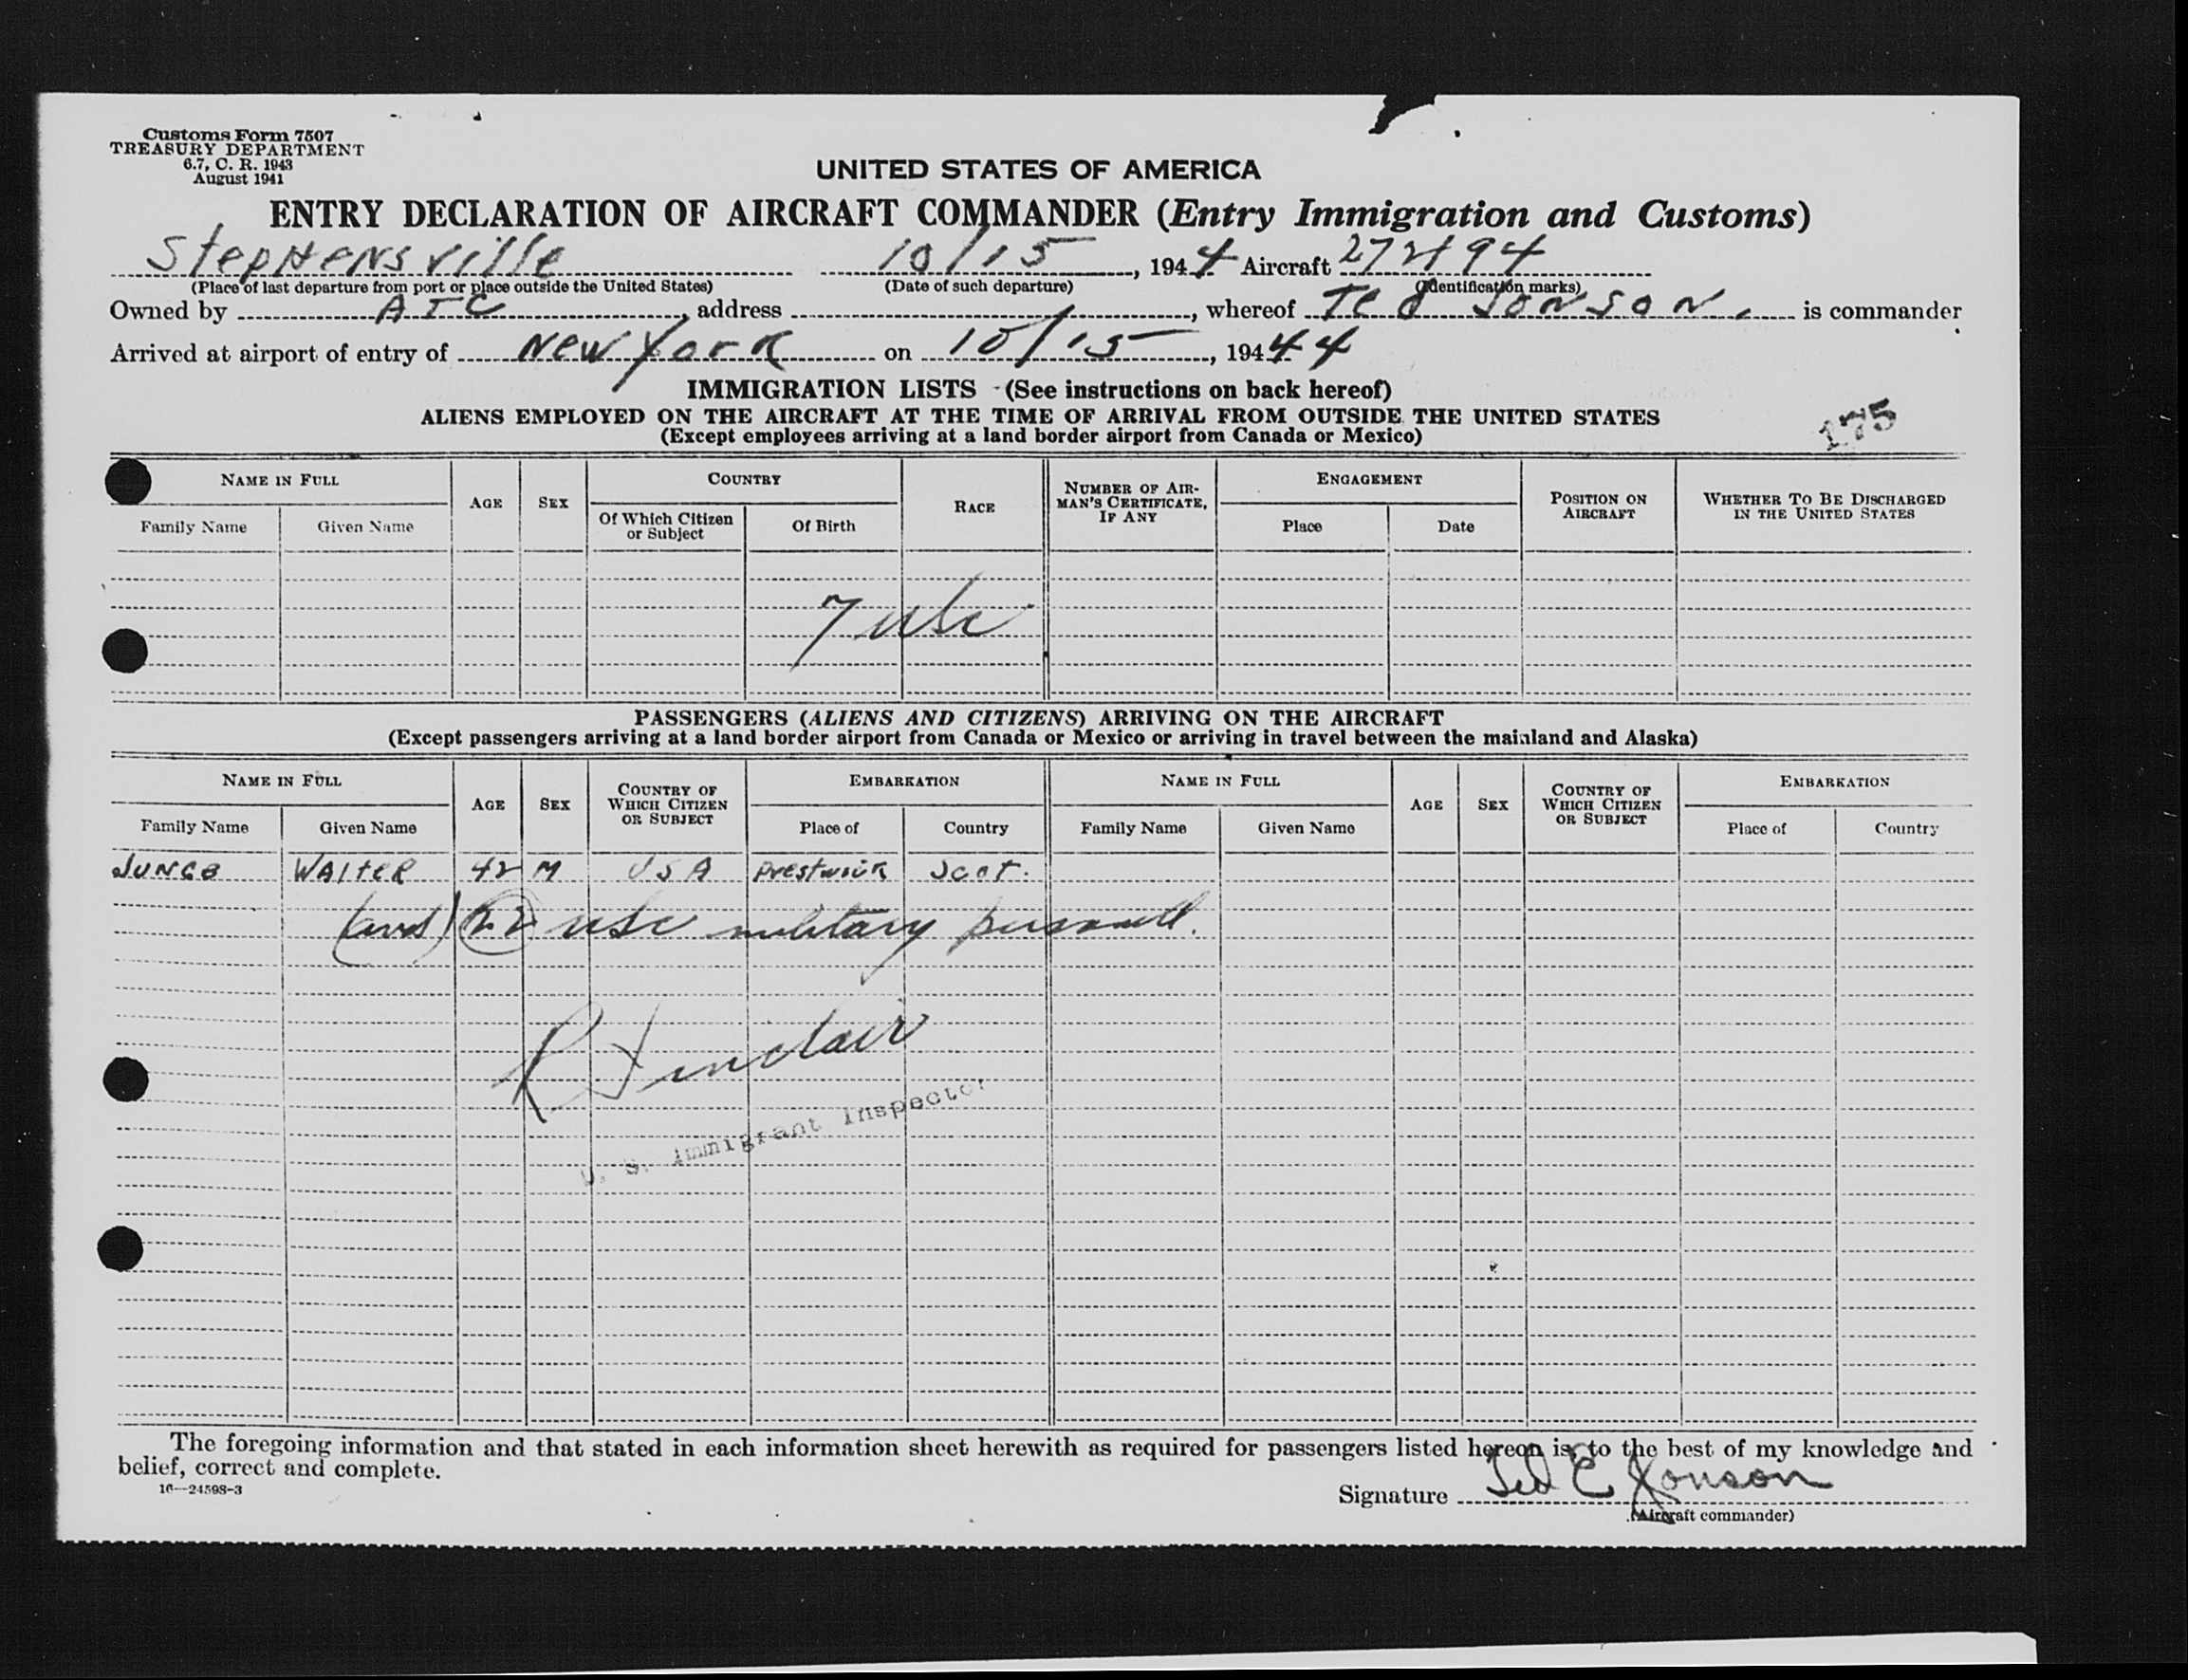 Customs Form 7507
TREASURY DEPARTMENT
6.7, C. R. 1943
August 1941
UNITED STATES OF AMERICA
ENTRY DECLARATION OF AIRCRAFT COMMANDER (Entry Immigration and Customs)
Stephensville 10/15, 1944 Aircraft 272494
(Place of last departure from port or place outside the United States) (Date of such departure) (Identification marks)
Owned by ATC, address, whereof Ted Jonson. is commander
Arrived at airport of entry of New York on 10/15, 194 44
IMMIGRATION LISTS (See instructions on back hereof)
ALIENS EMPLOYED ON THE AIRCRAFT AT THE TIME OF ARRIVAL FROM OUTSIDE THE UNITED STATES
175
(Except employees arriving at a land border airport from Canada or Mexico)
NAME IN FULL AGE SEX COUNTRY RACE NUMBER OF AIRMAN'S CERTIFICATE, IF ANY ENGAGEMENT POSITION ON AIRCRAFT WHETHER TO BE DISCHARGED IN THE UNITED STATES
Family Name Given Name Of Which Citizen or Subject Of Birth Place Date
7 usc
PASSENGERS (ALIENS AND CITIZENS) ARRIVING ON THE AIRCRAFT
(Except passengers arriving at a land border airport from Canada or Mexico or arriving in travel between the mainland and Alaska)
NAME IN FULL AGE SEX COUNTRY OF WHICH CITIZEN OR SUBJECT EMBARKATION NAME IN FULL AGE SEX COUNTRY OF WHICH CITIZEN OR SUBJECT EMBARKATION
Family Name Given Name Place of Country Family Name Given Name Place of Country
WALTER 42 M USA Prestwick Scot.
(and) 22 usc military personell.
R Sinclair
U. S. Immigrant Inspector
The foregoing information and that stated in each information sheet herewith as required for passengers listed hereon is, to the best of my knowledge and
belief, correct and complete.
16—24598-3
Signature Ted C Jonson
(Aircraft commander)